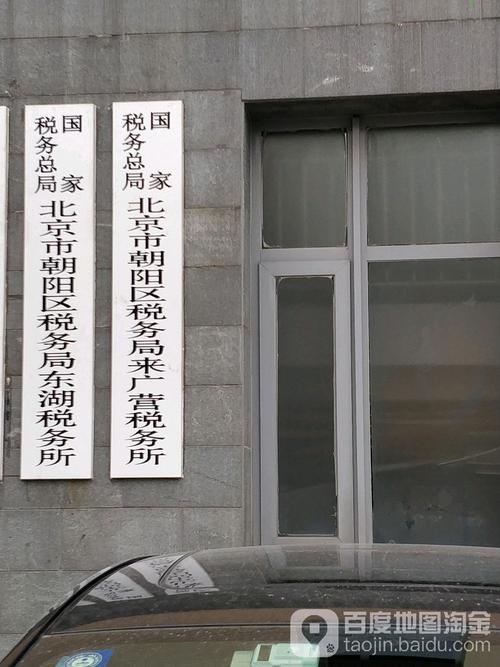 国家
税务总局
北京市朝阳区税务局东湖税务所
国家
税务总局
北京市朝阳区税务局来广营税务所
百度地图淘金
taojin.baidu.com